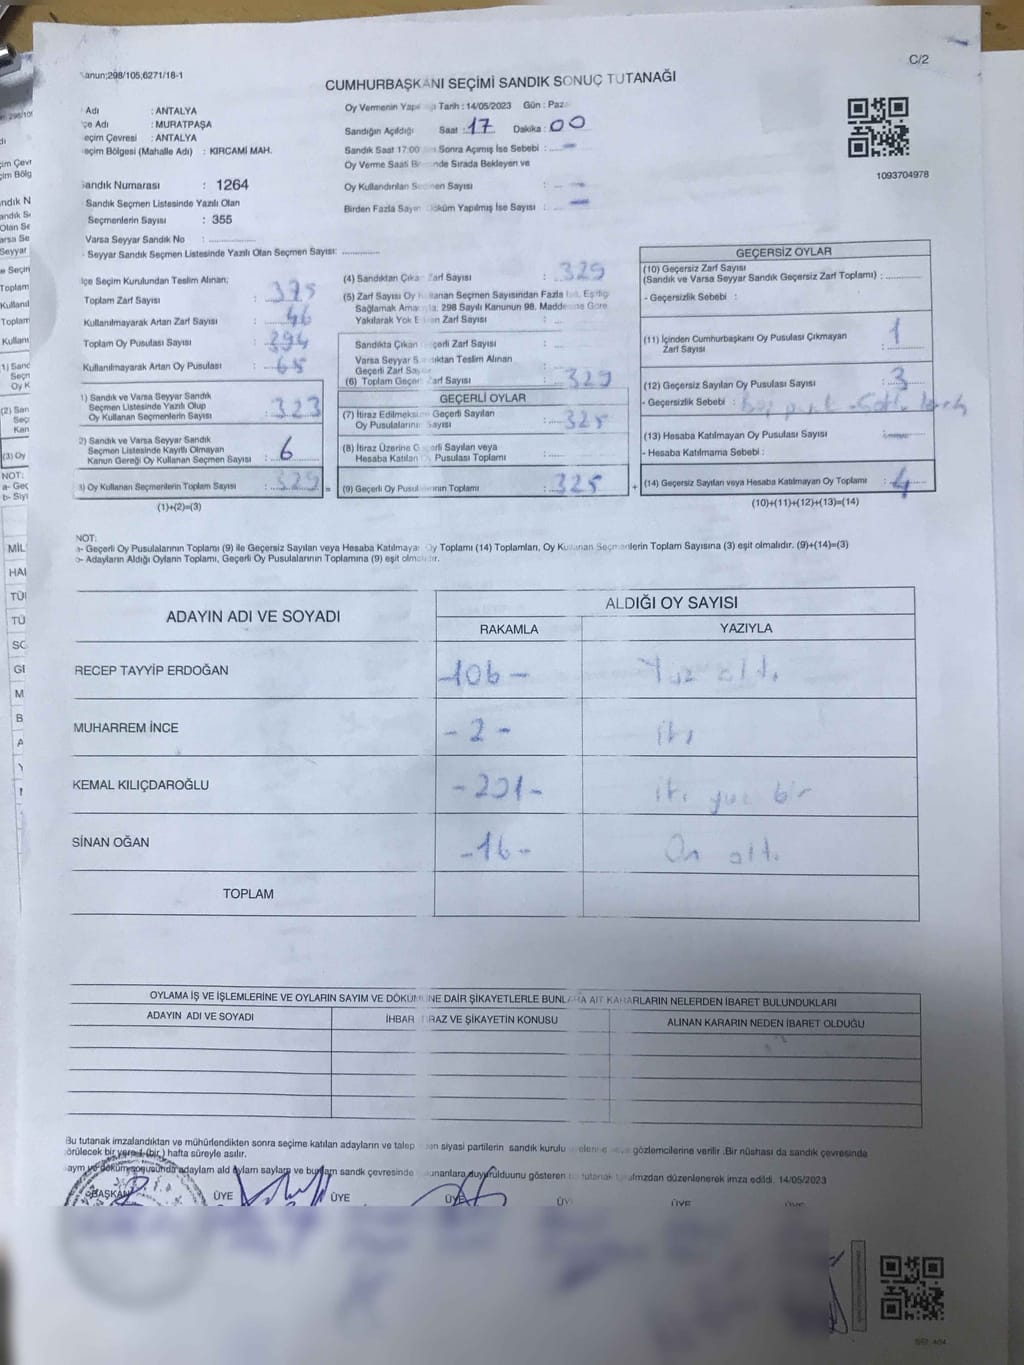 Kanun;298/105,6271/18-1
C/2
CUMHURBAŞKANI SEÇİMİ SANDIK SONUÇ TUTANAĞI
Adı : ANTALYA
İçe Adı : MURATPAŞA
Seçim Çevresi : ANTALYA
Seçim Bölgesi (Mahalle Adı) : KIRCAMİ MAH.
Sandık Numarası : 1264
Sandık Seçmen Listesinde Yazılı Olan
Seçmenlerin Sayısı : 355
Varsa Seyyar Sandık No :
Seyyar Sandık Seçmen Listesinde Yazılı Olan Seçmen Sayısı:
Oy Vermenin Tarih : 14/05/2023 Gün : Paz
Sandığın Açıldığı Saat : 17 Dakika : 00
Sandık Saat 17:00 Sonra Açımış İse Sebebi : -
Oy Verme Saati Sırada Bekleyen ve
Oy Kullandırılan Seçmen Sayısı : -
Birden Fazla Sayım Döküm Yapılmış İse Sayısı : -
1093704978
İçe Seçim Kurulundan Teslim Alınan;
Toplam Zarf Sayısı : 375
Kullanılmayarak Artan Zarf Sayısı : 46
Toplam Oy Pusulası Sayısı : 394
Kullanılmayarak Artan Oy Pusulası : 65
1) Sandık ve Varsa Seyyar Sandık
Seçmen Listesinde Yazılı Olup
Oy Kullanan Seçmenlerin Sayısı : 323
2) Sandık ve Varsa Seyyar Sandık
Seçmen Listesinde Kayıtlı Olmayan
Kanun Gereği Oy Kullanan Seçmen Sayısı : 6
3) Oy Kullanan Seçmenlerin Toplam Sayısı : 329
(1)+(2)=(3)
(4) Sandıktan Çıkan Zarf Sayısı : 329
(5) Zarf Sayısı Oy Kullanan Seçmen Sayısından Fazla İse, Eşitliği
Sağlamak 298 Sayılı Kanunun 98. Maddesine Göre
Yakılarak Yok Zarf Sayısı :
Sandıkta Çıkan Geçerli Zarf Sayısı :
Varsa Seyyar Sandıktan Teslim Alınan
Geçerli Zarf Sayısı
(6) Toplam Geçerli Zarf Sayısı : 329
GEÇERLİ OYLAR
(7) İtiraz Edilmeksizin Geçerli Sayılan
Oy Pusulalarının Sayısı : 325
(8) İtiraz Üzerine Geçerli Sayılan veya
Hesaba Katılan Oy Pusulası Toplamı :
= (9) Geçerli Oy Pusulalarının Toplamı : 325
GEÇERSİZ OYLAR
(10) Geçersiz Zarf Sayısı
(Sandık ve Varsa Seyyar Sandık Geçersiz Zarf Toplamı) :
- Geçersizlik Sebebi :
(11) İçinden Cumhurbaşkanı Oy Pusulası Çıkmayan
Zarf Sayısı : 1
(12) Geçersiz Sayılan Oy Pusulası Sayısı : 3
- Geçersizlik Sebebi :
(13) Hesaba Katılmayan Oy Pusulası Sayısı : -
- Hesaba Katılmama Sebebi :
+ (14) Geçersiz Sayılan veya Hesaba Katılmayan Oy Toplamı : 4
(10)+(11)+(12)+(13)=(14)
NOT:
a- Geçerli Oy Pusulalarının Toplamı (9) ile Geçersiz Sayılan veya Hesaba Katılmayan Oy Toplamı (14) Toplamları, Oy Kullanan Seçmenlerin Toplam Sayısına (3) eşit olmalıdır. (9)+(14)=(3)
b- Adayların Aldığı Oyların Toplamı, Geçerli Oy Pusulalarının Toplamına (9) eşit olmalıdır.
ADAYIN ADI VE SOYADI
ALDIĞI OY SAYISI
RAKAMLA YAZIYLA
RECEP TAYYİP ERDOĞAN -106- Yüz altı
MUHARREM İNCE -2- iki
KEMAL KILIÇDAROĞLU -201- iki yüz bir
SİNAN OĞAN -16- On altı
TOPLAM
OYLAMA İŞ VE İŞLEMLERİNE VE OYLARIN SAYIM VE DÖKÜMÜNE DAİR ŞİKAYETLERLE BUNLARA AİT KARARLARIN NELERDEN İBARET BULUNDUKLARI
ADAYIN ADI VE SOYADI İHBAR İTİRAZ VE ŞİKAYETİN KONUSU ALINAN KARARIN NEDEN İBARET OLDUĞU
Bu tutanak imzalandıktan ve mühürlendikten sonra seçime katılan adayların ve talep eden siyasi partilerin sandık kurulu gözlemcilerine verilir .Bir nüshası da sandık çevresinde
görülecek bir yere 1 (bir ) hafta süreyle asılır.
adayların sandık çevresinde duyurulduunu gösteren tutanak düzenlenerek imza edildi. 14/05/2023
BAŞKAN ÜYE ÜYE ÜYE ÜYE ÜYE ÜYE